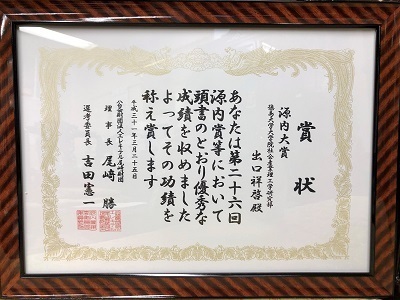 賞状
源内大賞
徳島大学大学院社会産業理工学研究部
出口祥啓 殿
あなたは第二十六回
源内賞等において
頭書のとおり優秀な
成績を収めました
よってその功績を
称え賞します
平成三十一年三月二十五日
公益財団法人エレキテル尾崎財団
理事長 尾崎 勝
選考委員長 吉田憲一